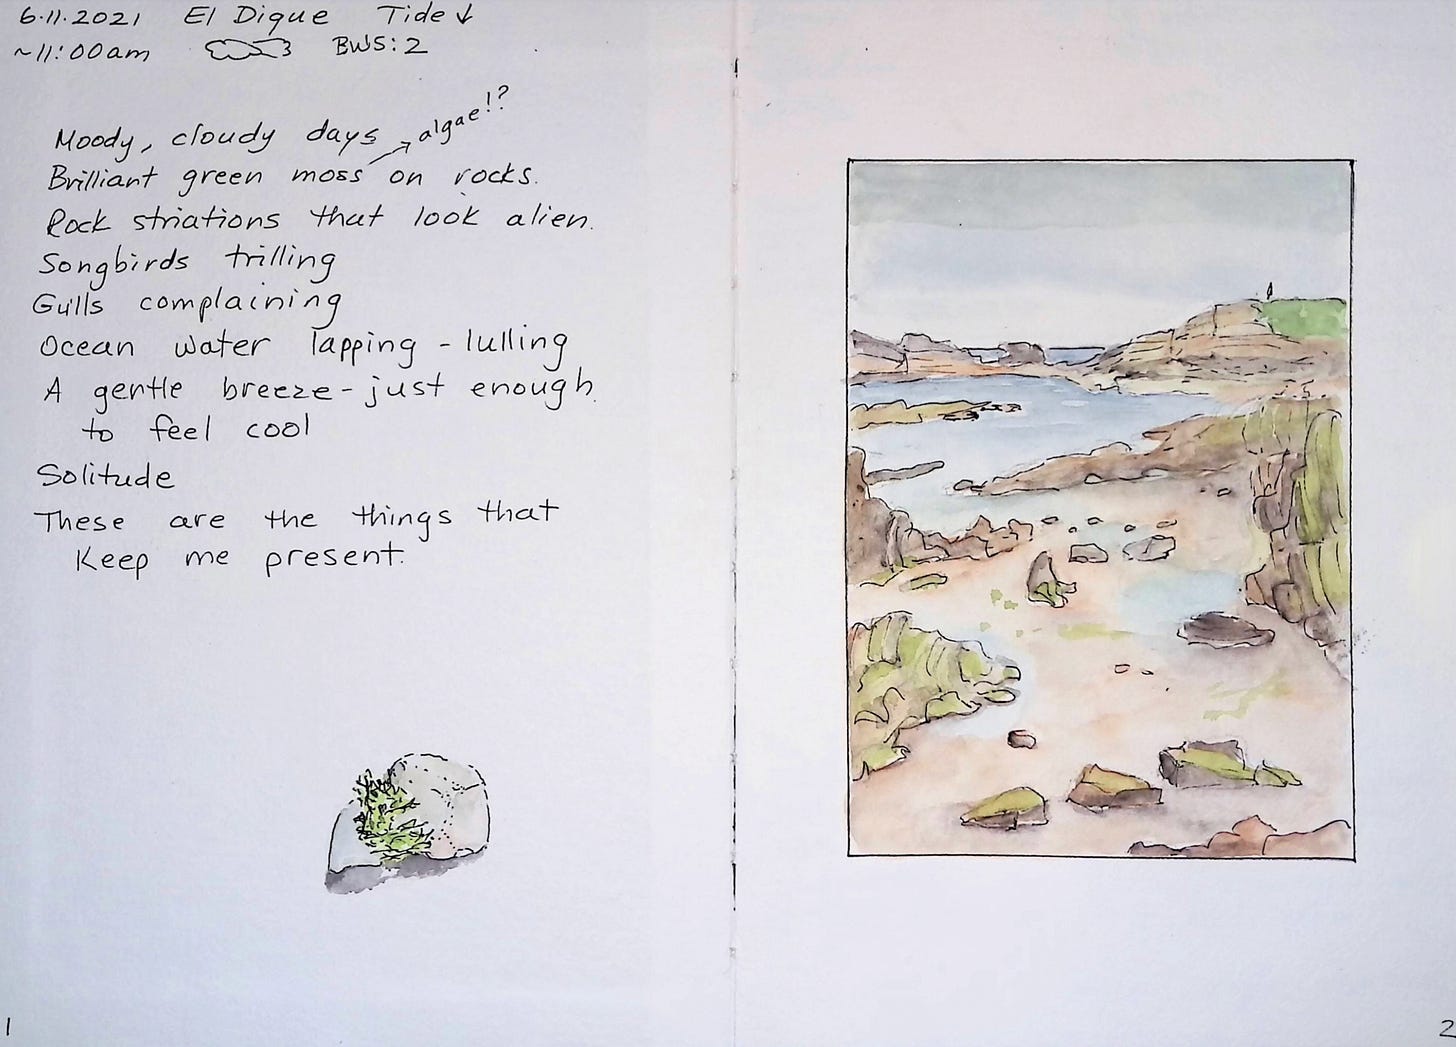 6.11.2021 El Dique Tide ↓
~11:00am BWS: 2
algae!?
Moody, cloudy days
Brilliant green moss on rocks.
Rock striations that look alien.
Songbirds trilling
Gulls complaining
Ocean water lapping - lulling
A gentle breeze - just enough
to feel cool
Solitude
These are the things that
Keep me present.
1
2